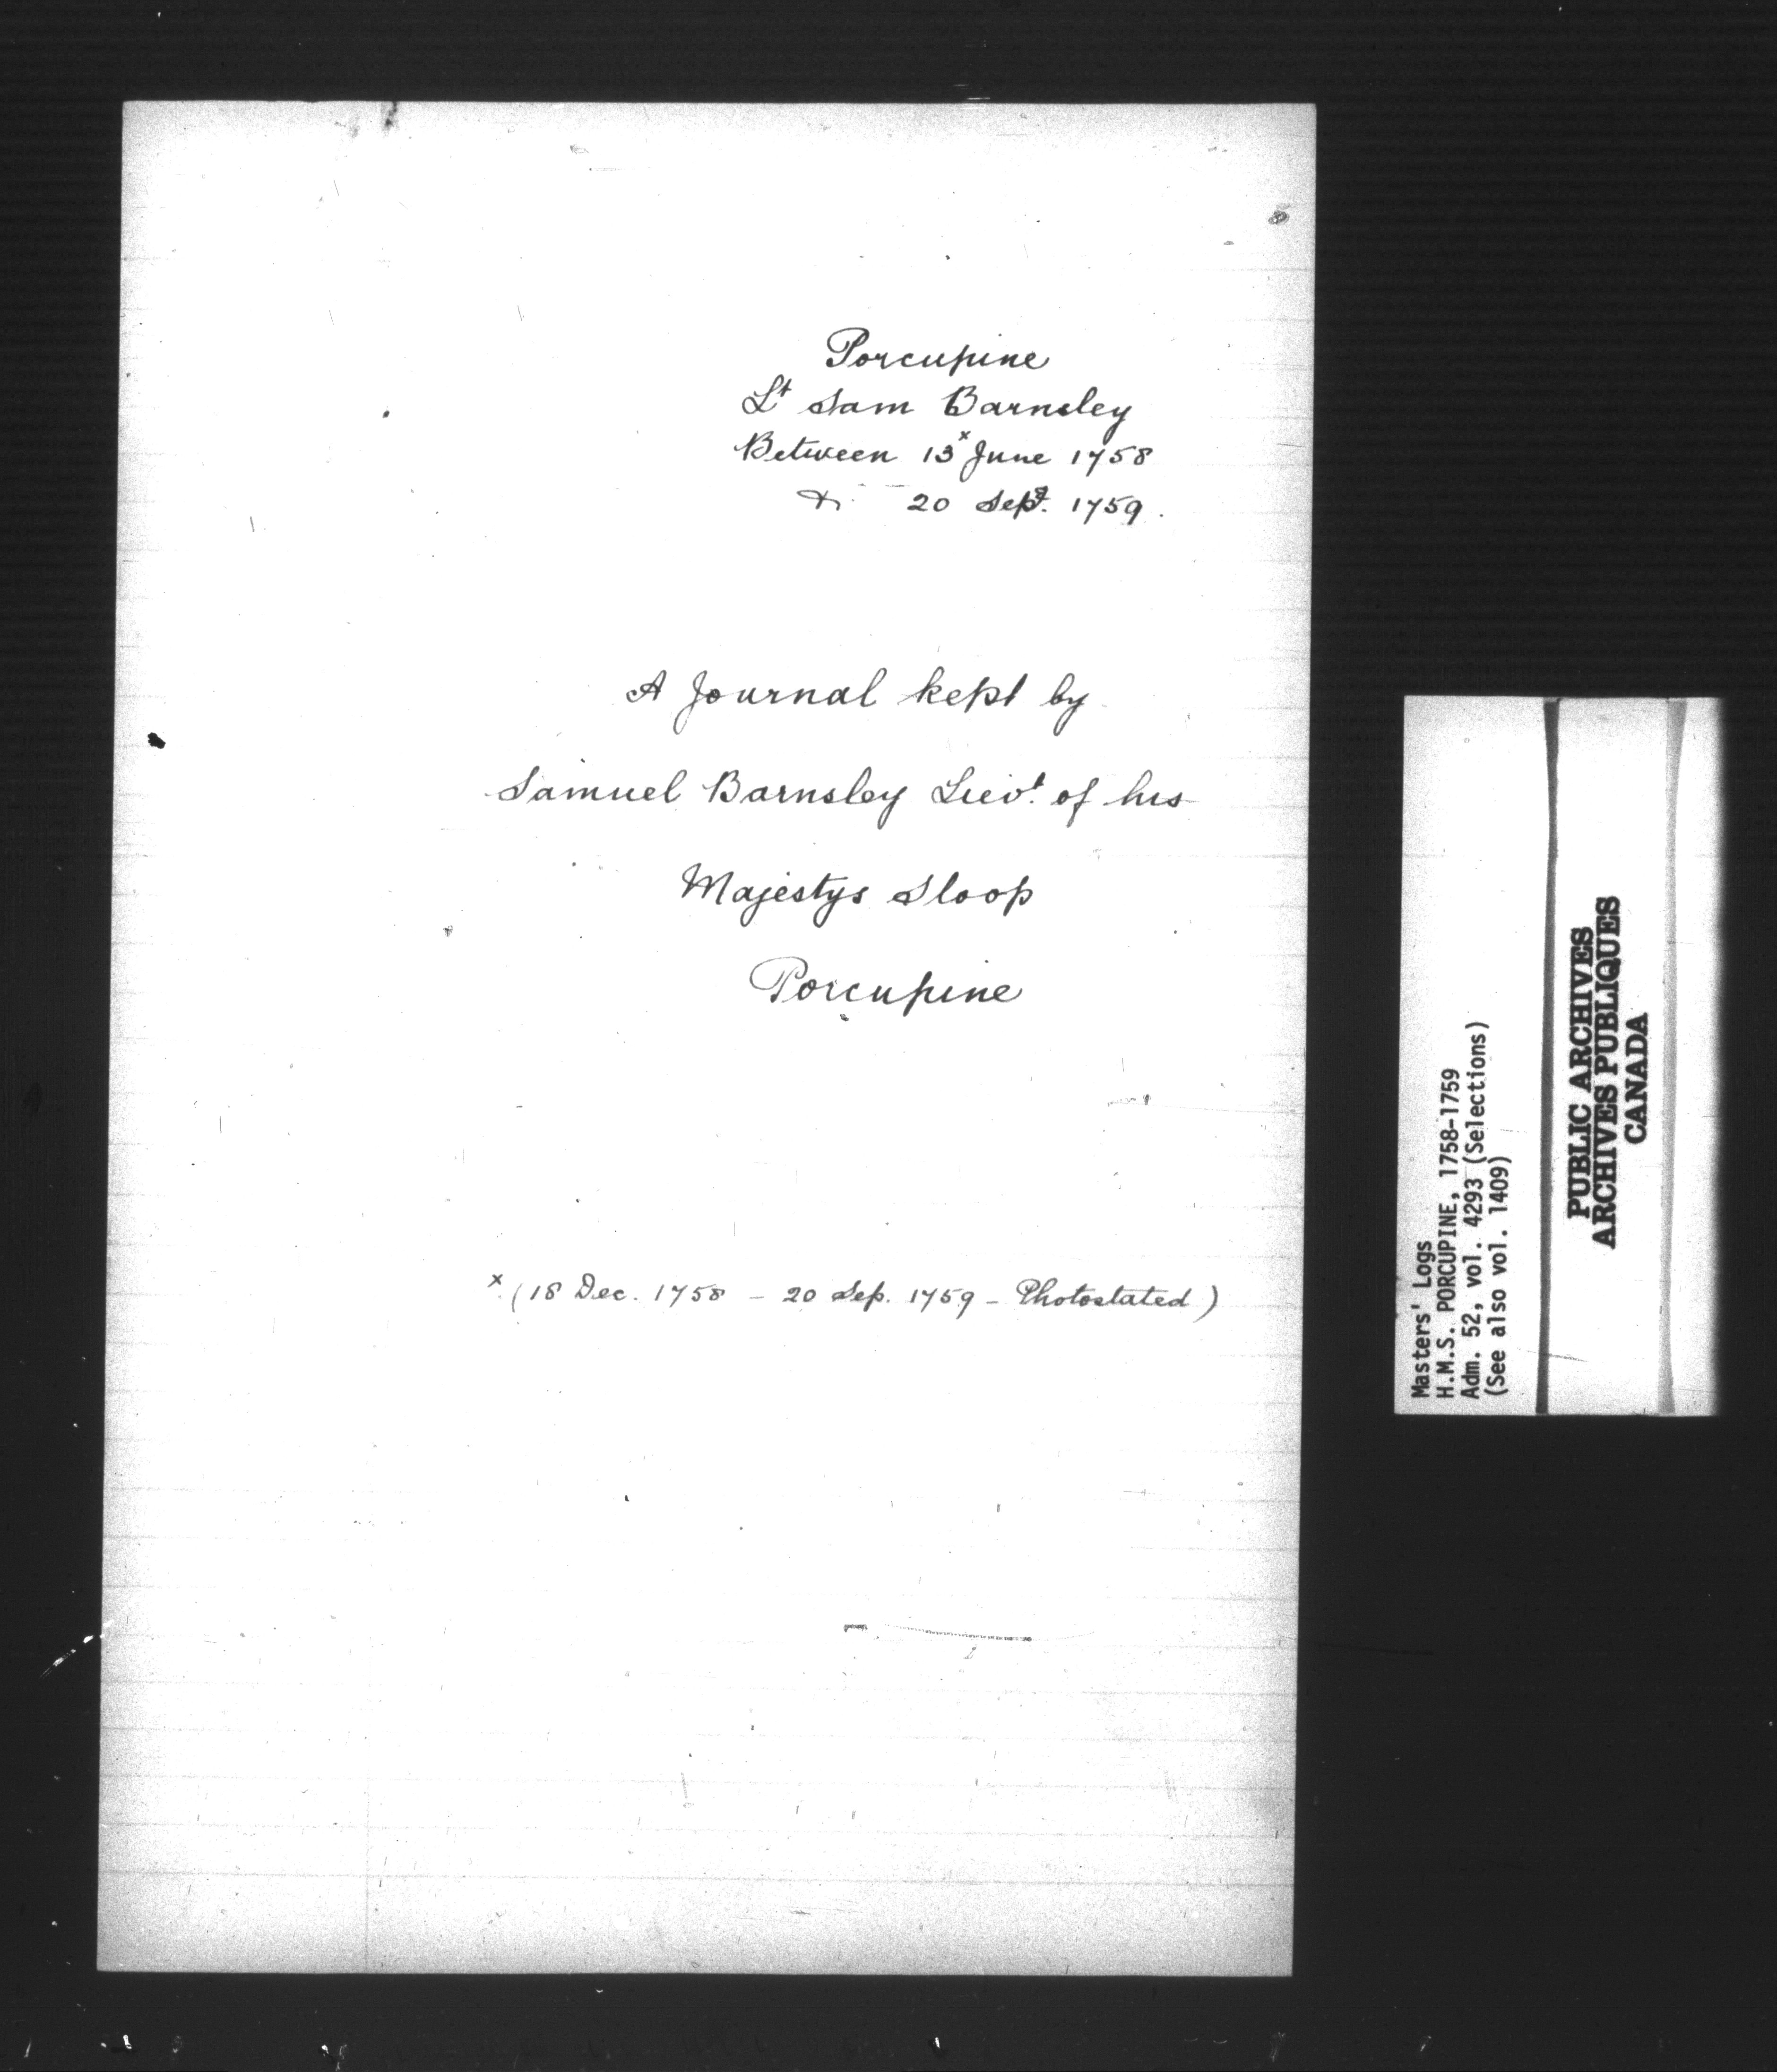 Porcupine
Lt Sam Barnsley
Between 13 x June 1758
& 20 Sept. 1759.
A Journal kept by
Samuel Barnsley Lievt. of his
Majestys Sloop
Porcupine
x (18 Dec. 1758 – 20 Sep. 1759 – Photostated)
Masters' Logs
H.M.S. PORCUPINE, 1758-1759
Adm. 52, vol. 4293 (Selections)
(See also vol. 1409)
PUBLIC ARCHIVES
ARCHIVES PUBLIQUES
CANADA